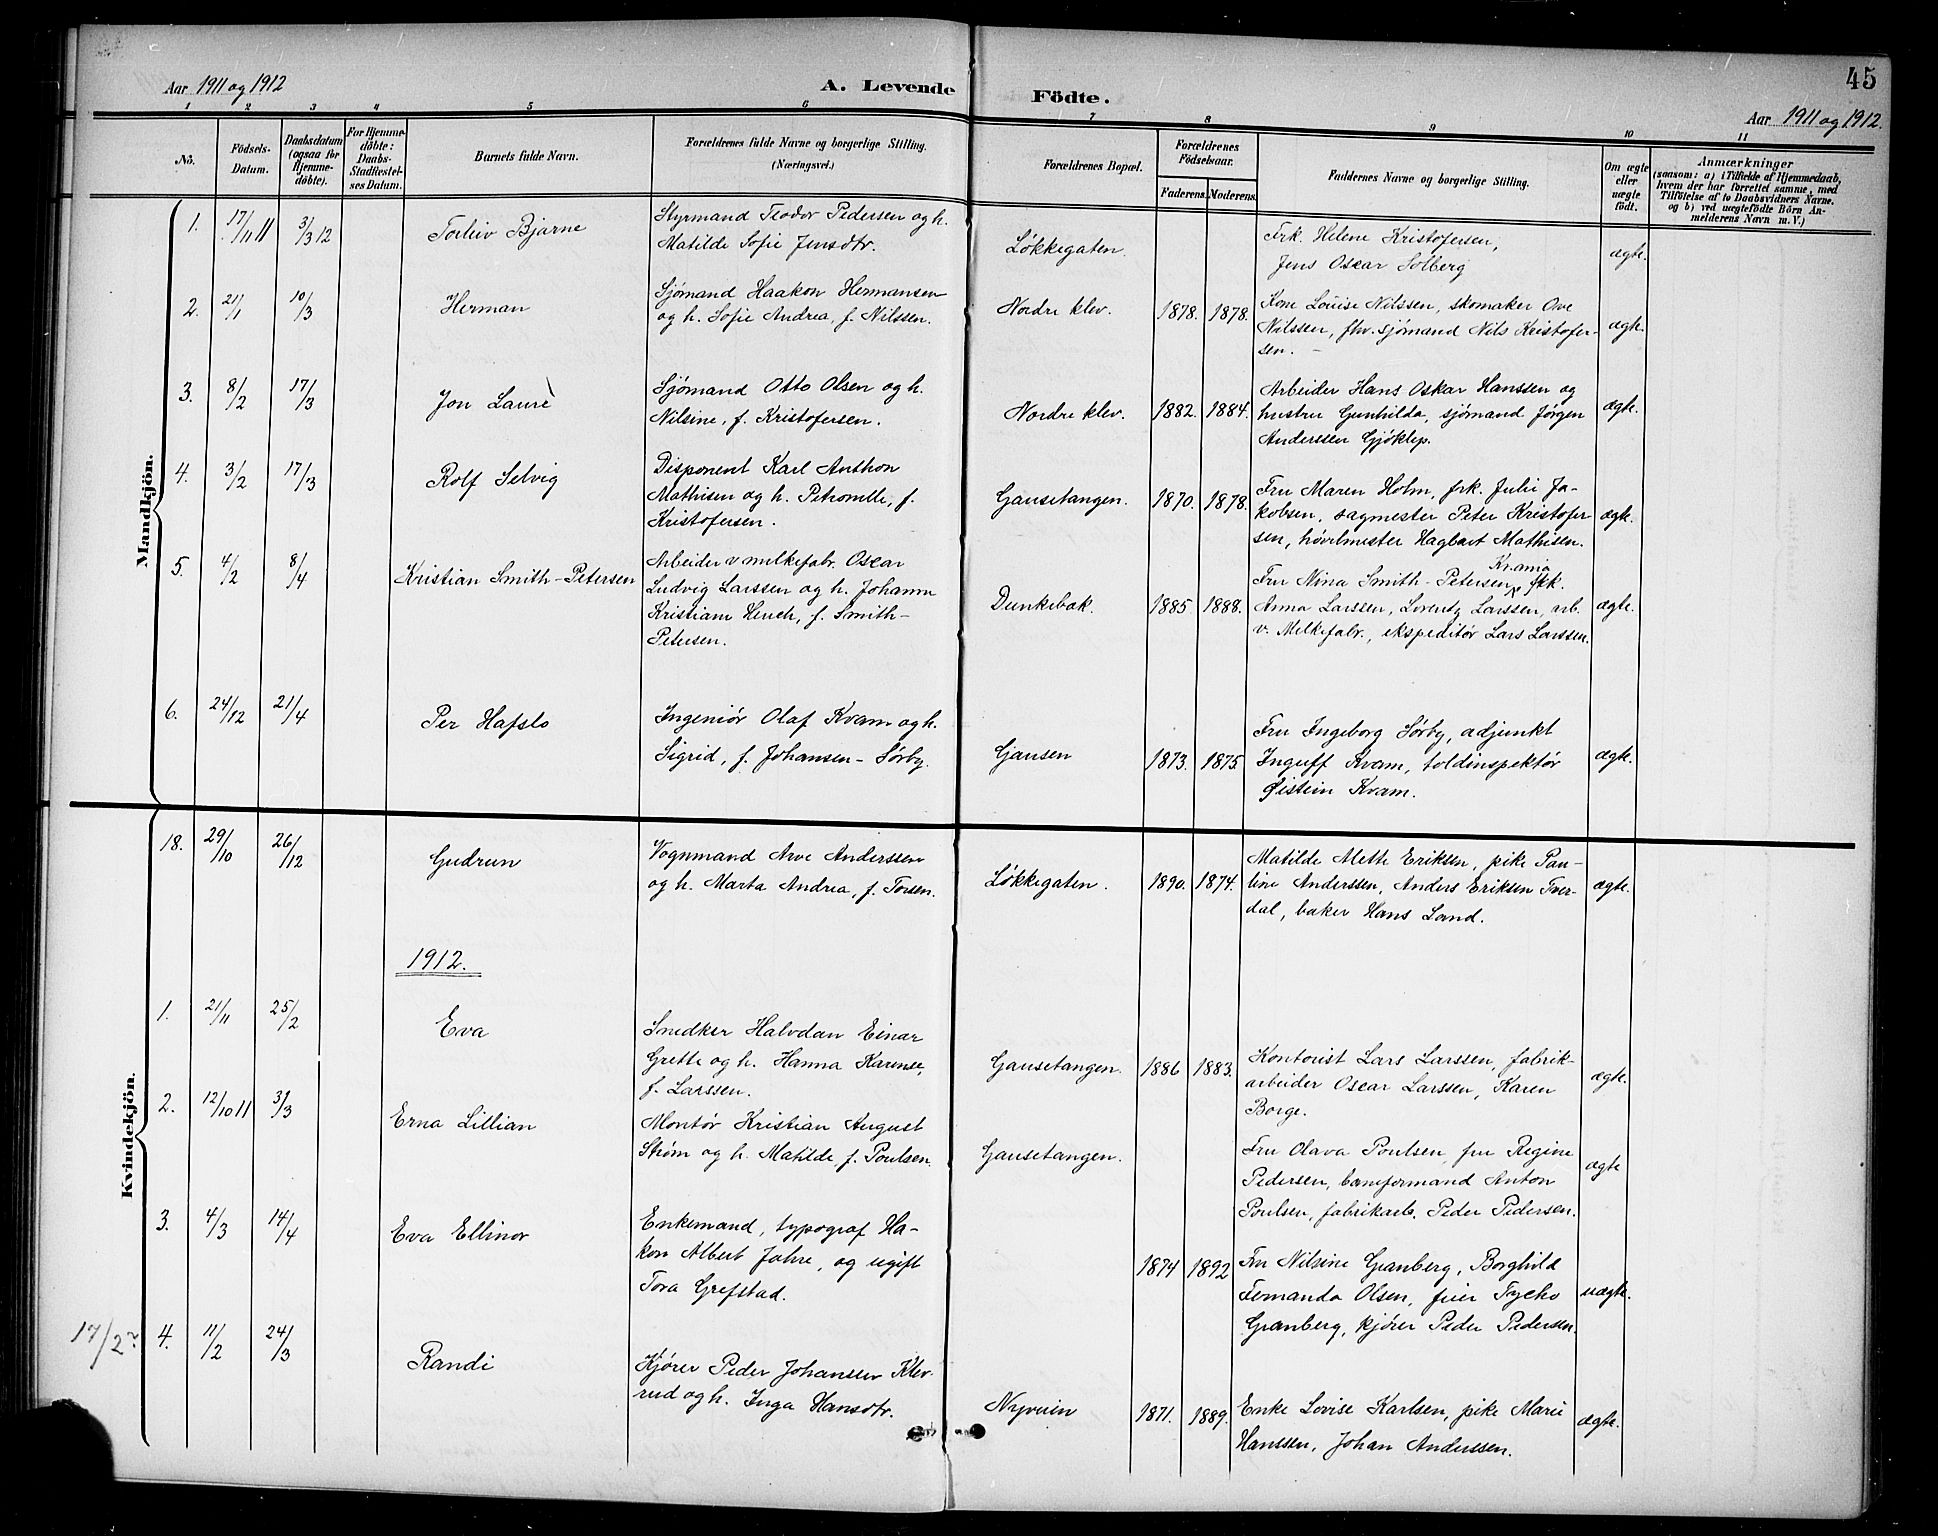 Aar 1911 og 1912
A. Levende
Födte.
45
Aar 1911 og 1912.
1 2 3 4 5 6 7 8 9 10 11
No.
Födsels-Datum.
Daabsdatum (ogsaa for Hjemmedöbte).
For Hjemmedöbte: Daabs-Stadfestelses Datum.
Barnets fulde Navn.
Forældrenes fulde Navne og borgerlige Stilling.
(Næringsvei.)
Forældrenes Bopæl.
Forældrenes Födselsaar.
Faderens.
Moderens.
Faddernes Navne og borgerlige Stilling.
Om ægte eller uægte födt.
Anmærkninger
(saasom: a) i Tilfælde af Hjemmedaab,
hvem der har forrettet samme, med
Tilföielse af to Daabsvidners Navne.
og b) ved uægtefödte Börn Anmelderens Navn m. V.)
Mandkjön.
1. 17/11 11 3/3 12 Torleiv Bjarne
Styrmand Teodor Pedersen og h.
Matilde Sofie Jensdtr.
Løkkegaten.
Frk. Helene Kristofersen,
Jens Oscar Solberg
ægte.
2. 21/1 10/3 Herman
Sjømand Haakon Hermansen
og h. Sofie Andrea, f. Nilssen.
Nordre klev. 1878. 1878.
Kone Louise Nilssen, skomaker Ove
Nilssen, fhv. sjømand Nils Kristofer-
sen.
ægte.
3. 8/2 17/3 Jon Laurè
Sjømand Otto Olsen og h.
Nilsine, f. Kristofersen.
Nordre klev. 1882. 1884.
Arbeider Hans Oskar Hanssen og
hustru Gunhilda, sjømand Jørgen
Anderssen Gjøklep.
ægte.
4. 3/2 17/3 Rolf Selvig
Disponent Karl Anthon
Mathisen og h. Petronelle, f.
Kristofersen.
Gausetangen. 1870. 1878.
Fru Maren Holm, frk. Julie Ja-
kobsen, sagmester Peter Kristofer
sen, høvelmester Hagbart Mathisen.
ægte.
5. 4/2 8/4 Kristian Smith-Petersen
Arbeider v melkefabr. Oscar
Ludvig Larssen og h. Johanne
Kristiane Hench, f. Smith-
Petersen.
Dunkebæk. 1885. 1888.
Krama
Fru Nina Smith-Petersen, frk.
Anna Larssen, Lorentz Larssen, arb.
v. Melkefabr., ekspeditör Lars Larssen.
ægte.
6. 24/12 21/4 Per Hafslo
Ingeniør Olaf Kvam og h.
Sigrid, f. Johansen-Sørby.
Gjausen 1873. 1875.
Fru Ingeborg Sørby, adjunkt
Inguff Kvam, toldinspektør
Øistein Kvam.
ægte.
Kvindekjön.
18. 29/10 26/12 Gudrun
Vognmand Arve Anderssen
og h. Marta Andrea, f. Torsen.
Løkkegaten. 1890. 1874.
Matilde Mette Eriksen, pike Pau-
line Anderssen, Anders Eriksen Tver-
dal, baker Hans Land.
ægte.
1912.
1. 21/11 25/2 Eva
Snedker Halvdan Einar
Grette og h. Hanna Karense,
f. Larssen.
Gausetangen. 1886 1883.
Kontorist Lars Larssen, fabrik-
arbeider Oscar Larssen, Karen
Borge.
ægte.
2. 12/10 11 3/3 Erna Lillian
Montør Kristian August
Strøm og h. Matilde, f. Poulsen.
Gausetangen.
Fru Olava Poulsen, fru Regine
Pedersen, baneformand Anton
Poulsen, fabrikarb. Peder Pedersen.
ægte
3. 4/3 14/4 Eva Ellinor
Enkemand, typograf Ha-
kon Albert Jahre, og ugift
Tora Grefstad.
1874 1892
Fru Nilsine Granberg, Borghild
Fernanda Olsen, feier Tycho
Granberg, kjører Peder Pedersen.
uægte.
17/2? 4. 11/2 24/3 Randi
Kjører Peder Johansen Klev-
rud og h. Inga Hansdtr.
Nyveien 1871. 1889.
Enke Lovise Karlsen, pike Marie
Hanssen, Johan Anderssen.
ægte.